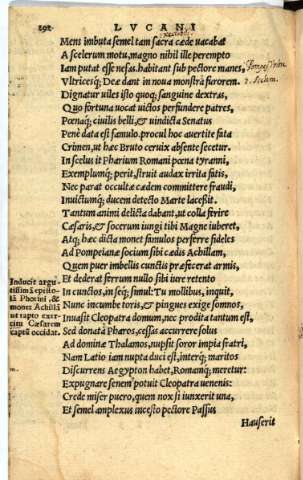 292 LVCANI
Mens imbuta semel tam sacra cæde vacabat
A scelerum motu, magno nihil ille perempto
Iam putat esse nefas. habitant sub pectore manes,
Vltricesq́; Deæ dant in noua monstra furorem.
Dignatur uiles isto quoq; sanguine dextras,
Quo fortuna uocat uictos perfundere patres,
Pœnaq́; ciuilis belli, & uindicta Senatus
Penè data est famulo. procul hoc auertite fata
Crimen, ut hæc Bruto ceruix absente secetur.
In scelus it Pharium Romani pœna tyranni,
Exemplumq́; perit, struit audax irrita fatis,
Nec parat occultæ cædem committere fraudi,
Inuictumq́; ducem detecto Marte lacessit.
Tantum animi delicta dabant, ut colla ferire
Cæsaris, & socerum iungi tibi Magne iuberet,
Atq; hæc dicta monet famulos perferre fideles
Ad Pompeianæ socium sibi cædis Achillam,
Quem puer imbellis cunctis præfecerat armis,
Et dederat ferrum nullo sibi iure retento
In cunctos, in seq́; simul: Tu mollibus, inquit,
Nunc incumbe toris, & pingues exige somnos,
Inuasit Cleopatra domum, nec prodita tantum est,
Sed donata Pharos, cessas accurrere solus
Ad dominæ Thalamos, nupsit soror impia fratri,
Nam Latio iam nupta duci est, interq; maritos
Discurrens Aegypton habet, Romamq́; meretur:
Expugnare senem potuit Cleopatra uenenis:
Crede miser puero, quem nox si iunxerit una,
Et semel amplexus incesto pectore passus
Hauserit
Inducit argu
tissimā epistо
lā Photini, &
monet Achillā
ut rapto exer
citu Cæsarem
captū occidat.